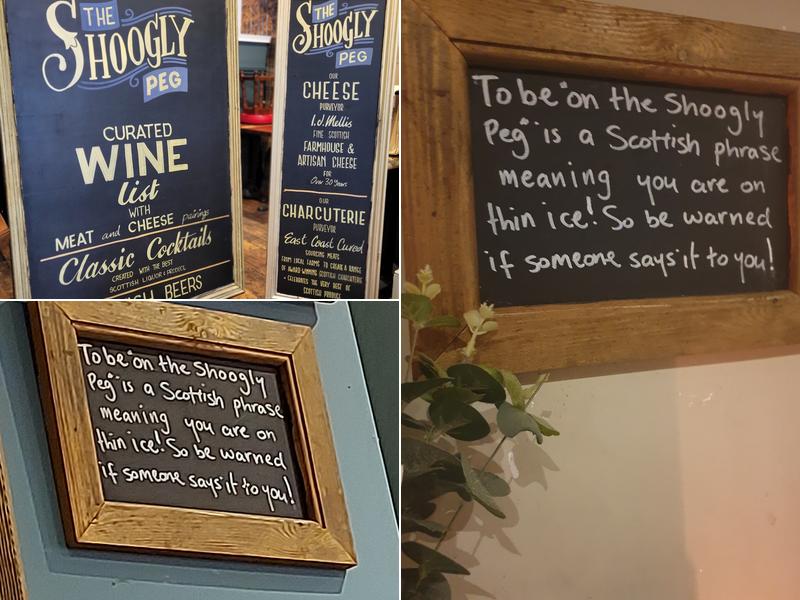 THE
SHOOGLY
PEG
CURATED
WINE
list
WITH
MEAT and CHEESE pairings
Classic Cocktails
CREATED WITH THE BEST
SCOTTISH LIQUOR & PRODUCE
BEERS
THE
SHOOGLY
PEG
OUR
CHEESE
PURVEYOR
I.J. Mellis
FINE SCOTTISH
FARMHOUSE &
ARTISAN CHEESE
FOR
Over 30 Years
OUR
CHARCUTERIE
PURVEYOR
East Coast Cured
SOURCING MEATS
FROM LOCAL FARMS TO CREATE A RANGE
OF AWARD-WINNING SCOTTISH CHARCUTERIE
& CELEBRATES THE VERY BEST OF
SCOTTISH PRODUCE
To be "on the Shoogly
Peg" is a Scottish phrase
meaning you are on
thin ice! So be warned
if someone says it to you!
To be "on the Shoogly
Peg" is a Scottish phrase
meaning you are on
thin ice! So be warned
if someone says it to you!